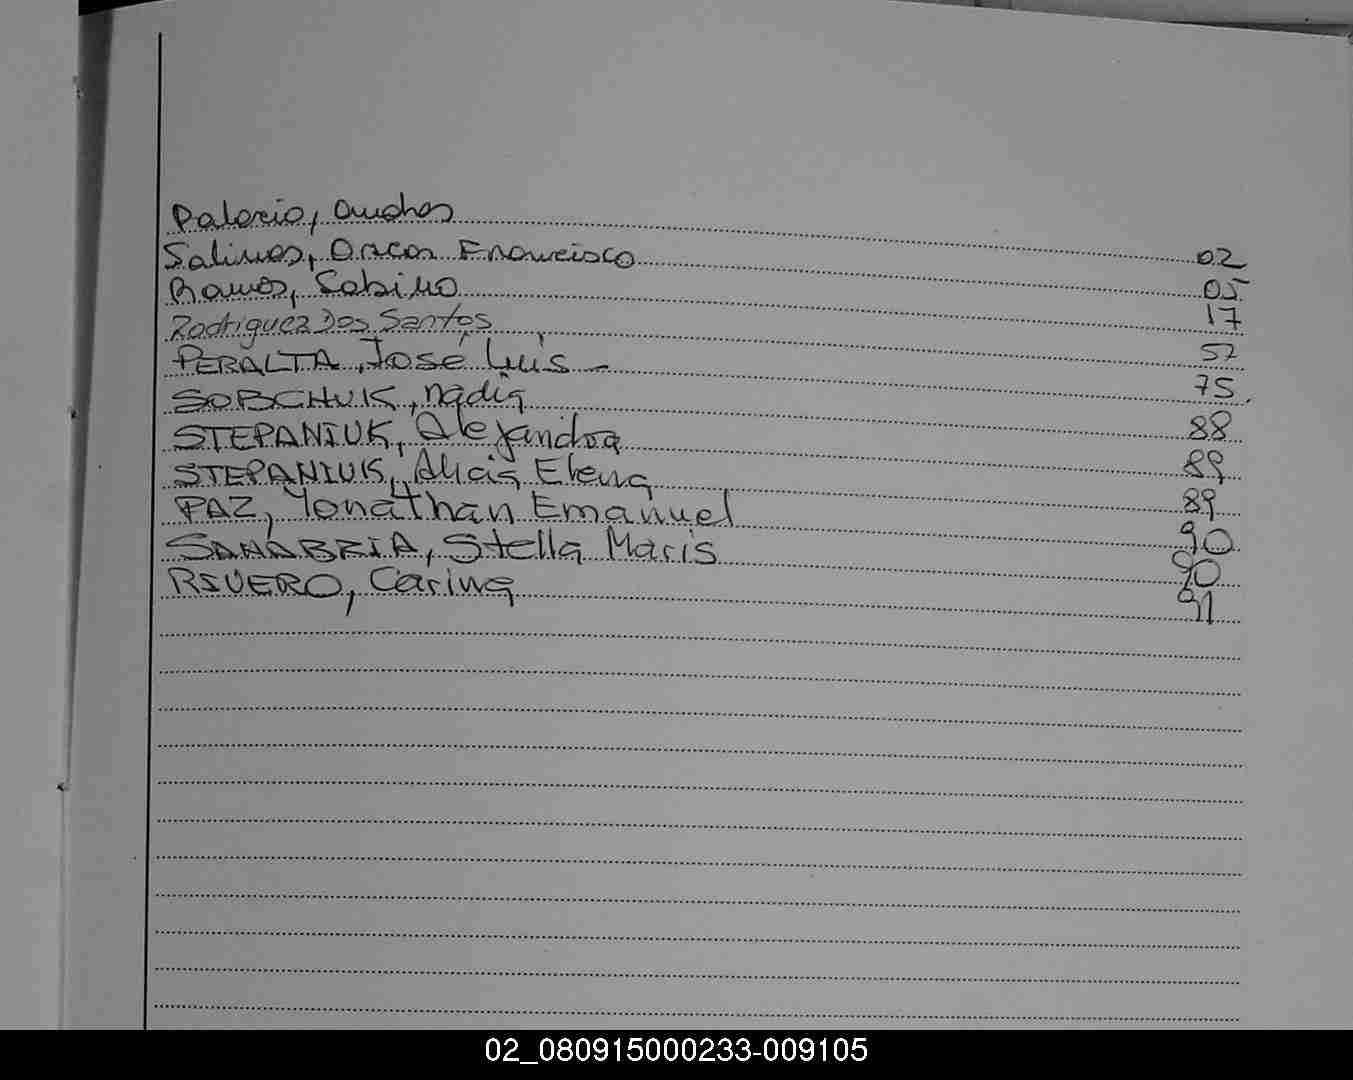 Palacio, Andres 02
Salinas, Oscar Francisco 05
Ramos, Sabino 17
Rodriguez Dos Santos 57
PERALTA, José Luis - 75
SOBCHUK, nadia 88
STEPANIUK, Alejandra 89
STEPANIUK, Alicia Elena 89
PAZ, Yonathan Emanuel 90
SANABRIA, Stella Maris 90
RIVERO, Carina 91
02_080915000233-009105